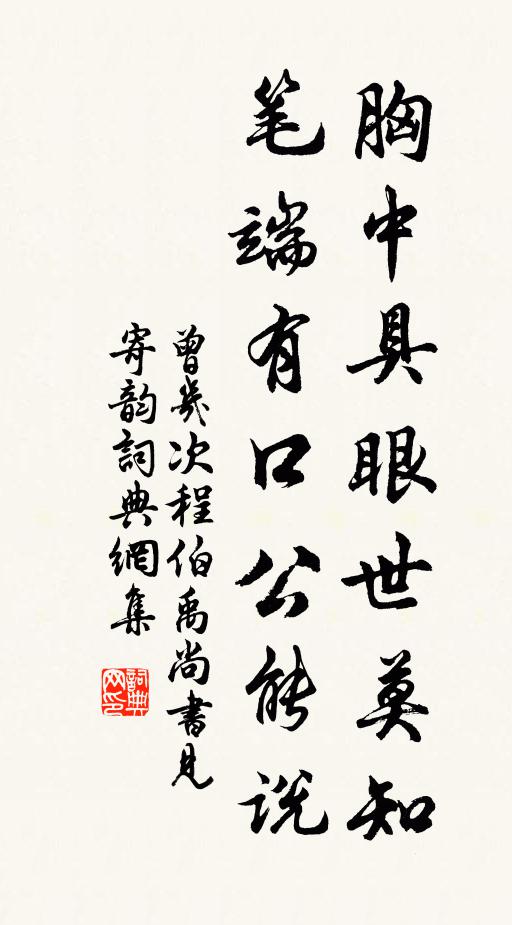 胸中具眼世莫知
笔端有口公能说
曾几次程伯禹尚書見
寄韵詞典網集
詞典网印